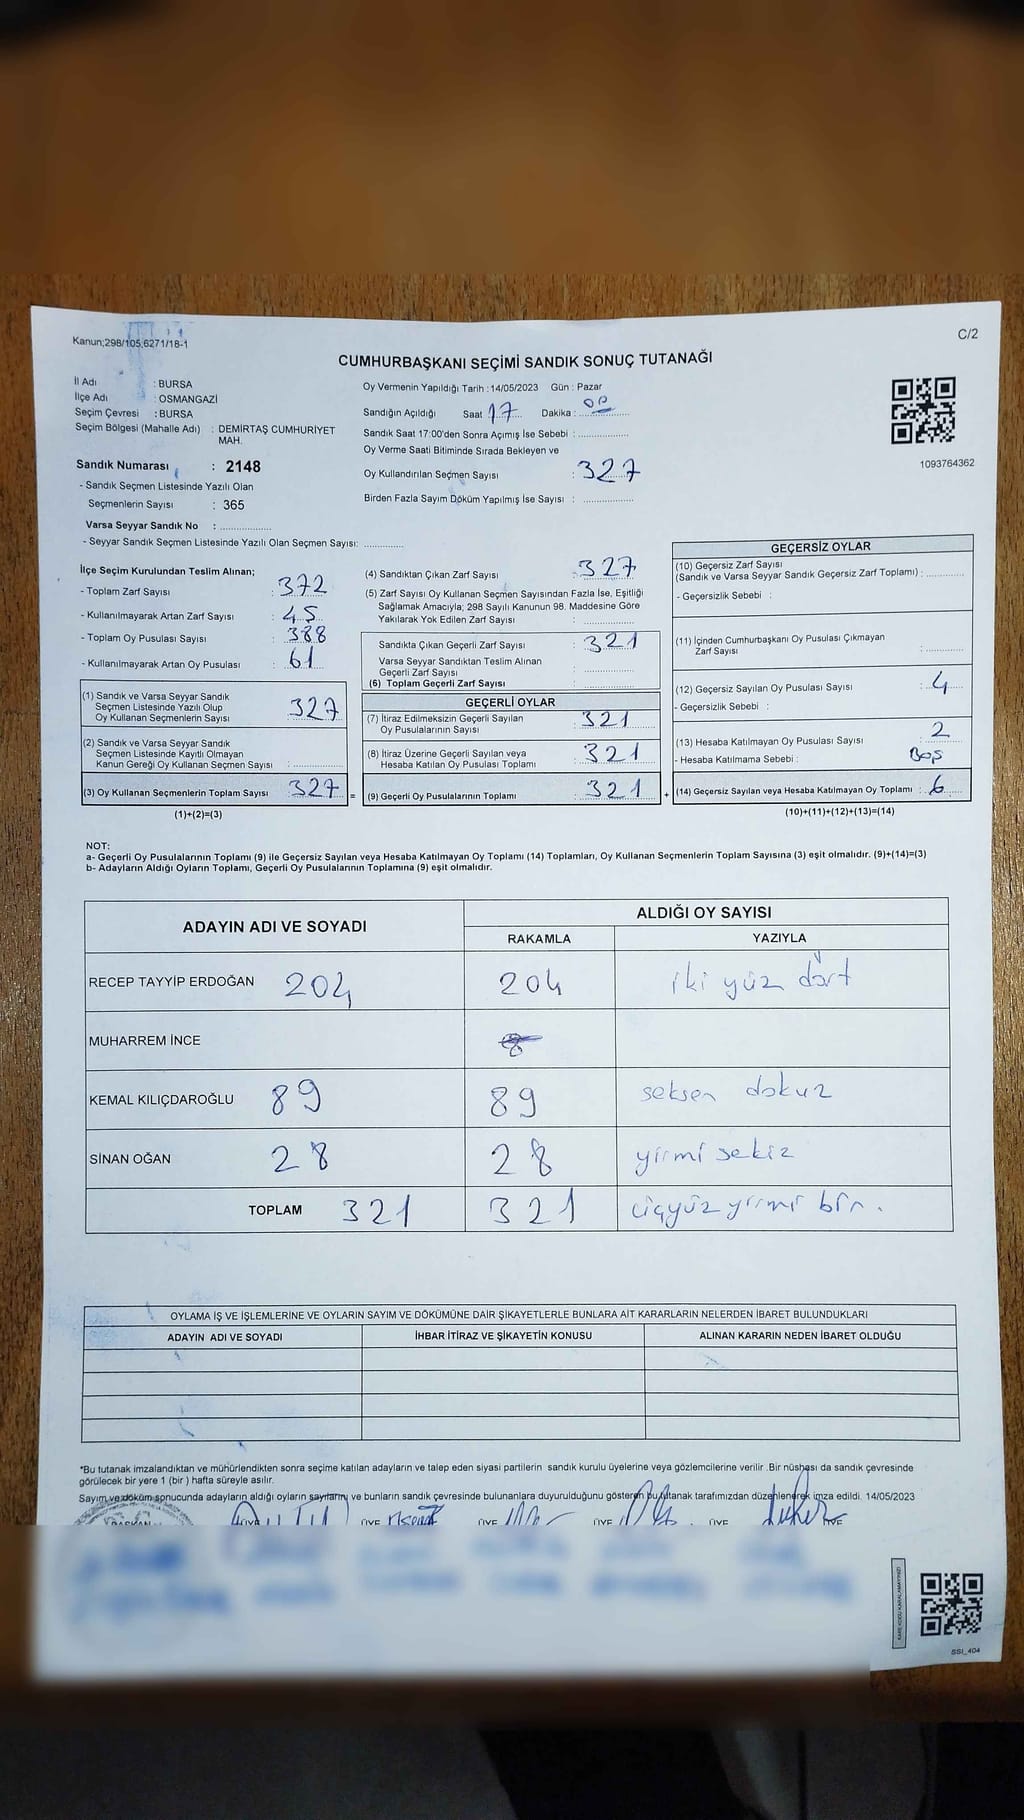 Kanun;298/105,6271/18-1
C/2
CUMHURBAŞKANI SEÇİMİ SANDIK SONUÇ TUTANAĞI
İl Adı : BURSA
İlçe Adı : OSMANGAZİ
Seçim Çevresi : BURSA
Seçim Bölgesi (Mahalle Adı) : DEMİRTAŞ CUMHURİYET
MAH.
Sandık Numarası : 2148
- Sandık Seçmen Listesinde Yazılı Olan
Seçmenlerin Sayısı : 365
Varsa Seyyar Sandık No : ..................
- Seyyar Sandık Seçmen Listesinde Yazılı Olan Seçmen Sayısı: .............
Oy Vermenin Yapıldığı Tarih : 14/05/2023 Gün : Pazar
Sandığın Açıldığı Saat 17 Dakika : 00
Sandık Saat 17:00'den Sonra Açımış İse Sebebi : .................
Oy Verme Saati Bitiminde Sırada Bekleyen ve
Oy Kullandırılan Seçmen Sayısı : 327
Birden Fazla Sayım Döküm Yapılmış İse Sayısı : .................
1093764362
İlçe Seçim Kurulundan Teslim Alınan;
- Toplam Zarf Sayısı : 372
- Kullanılmayarak Artan Zarf Sayısı : 45
- Toplam Oy Pusulası Sayısı : 388
- Kullanılmayarak Artan Oy Pusulası : 61
(1) Sandık ve Varsa Seyyar Sandık
Seçmen Listesinde Yazılı Olup
Oy Kullanan Seçmenlerin Sayısı 327
(2) Sandık ve Varsa Seyyar Sandık
Seçmen Listesinde Kayıtlı Olmayan
Kanun Gereği Oy Kullanan Seçmen Sayısı :.................
(3) Oy Kullanan Seçmenlerin Toplam Sayısı 327 =
(1)+(2)=(3)
(4) Sandıktan Çıkan Zarf Sayısı : 327
(5) Zarf Sayısı Oy Kullanan Seçmen Sayısından Fazla İse, Eşitliği
Sağlamak Amacıyla; 298 Sayılı Kanunun 98. Maddesine Göre
Yakılarak Yok Edilen Zarf Sayısı : .................
Sandıkta Çıkan Geçerli Zarf Sayısı : 321
Varsa Seyyar Sandıktan Teslim Alınan
Geçerli Zarf Sayısı : .................
(6) Toplam Geçerli Zarf Sayısı : .................
GEÇERLİ OYLAR
(7) İtiraz Edilmeksizin Geçerli Sayılan
Oy Pusulalarının Sayısı : 321
(8) İtiraz Üzerine Geçerli Sayılan veya
Hesaba Katılan Oy Pusulası Toplamı : 321
(9) Geçerli Oy Pusulalarının Toplamı : 321 +
GEÇERSİZ OYLAR
(10) Geçersiz Zarf Sayısı
(Sandık ve Varsa Seyyar Sandık Geçersiz Zarf Toplamı) : .............
- Geçersizlik Sebebi :
(11) İçinden Cumhurbaşkanı Oy Pusulası Çıkmayan
Zarf Sayısı : .............
(12) Geçersiz Sayılan Oy Pusulası Sayısı : 4
- Geçersizlik Sebebi :
(13) Hesaba Katılmayan Oy Pusulası Sayısı : 2
- Hesaba Katılmama Sebebi : Boş
(14) Geçersiz Sayılan veya Hesaba Katılmayan Oy Toplamı : 6
(10)+(11)+(12)+(13)=(14)
NOT:
a- Geçerli Oy Pusulalarının Toplamı (9) ile Geçersiz Sayılan veya Hesaba Katılmayan Oy Toplamı (14) Toplamları, Oy Kullanan Seçmenlerin Toplam Sayısına (3) eşit olmalıdır. (9)+(14)=(3)
b- Adayların Aldığı Oyların Toplamı, Geçerli Oy Pusulalarının Toplamına (9) eşit olmalıdır.
ADAYIN ADI VE SOYADI
ALDIĞI OY SAYISI
RAKAMLA YAZIYLA
RECEP TAYYİP ERDOĞAN 204 204 iki yüz dört
MUHARREM İNCE
KEMAL KILIÇDAROĞLU 89 89 seksen dokuz
SİNAN OĞAN 28 28 yirmi sekiz
TOPLAM 321 321 üçyüz yirmi bir.
OYLAMA İŞ VE İŞLEMLERİNE VE OYLARIN SAYIM VE DÖKÜMÜNE DAİR ŞİKAYETLERLE BUNLARA AİT KARARLARIN NELERDEN İBARET BULUNDUKLARI
ADAYIN ADI VE SOYADI İHBAR İTİRAZ VE ŞİKAYETİN KONUSU ALINAN KARARIN NEDEN İBARET OLDUĞU
*Bu tutanak imzalandıktan ve mühürlendikten sonra seçime katılan adayların ve talep eden siyasi partilerin sandık kurulu üyelerine veya gözlemcilerine verilir .Bir nüshası da sandık çevresinde
görülecek bir yere 1 (bir ) hafta süreyle asılır.
Sayım ve döküm sonucunda adayların aldığı oyların sayılarını ve bunların sandık çevresinde bulunanlara duyurulduğunu gösteren bu tutanak tarafımızdan düzenlenerek imza edildi. 14/05/2023
BAŞKAN ÜYE ÜYE ÜYE ÜYE ÜYE ÜYE
SSI_404